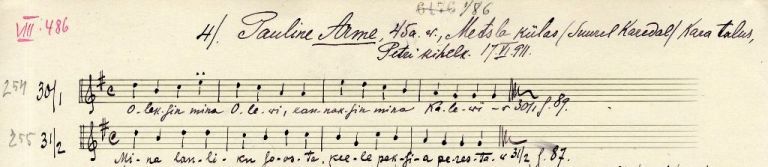 VIII. 486
1/86
4/. Pauline Arme, 45a. v., Metsla külas / Suurel Karedal / Kara talus,
Petri kihelk. 17 VI 911.
254 30/1
O-lek-sin mina O-le-vi, kan-nak-sin mina Ka-le-vi- 30/1 f. 89.
255 31/2
Mi-na lau-li- ku so-os-ta, kee-le pek-si-a pe-res-ta- 31/2 f. 87.